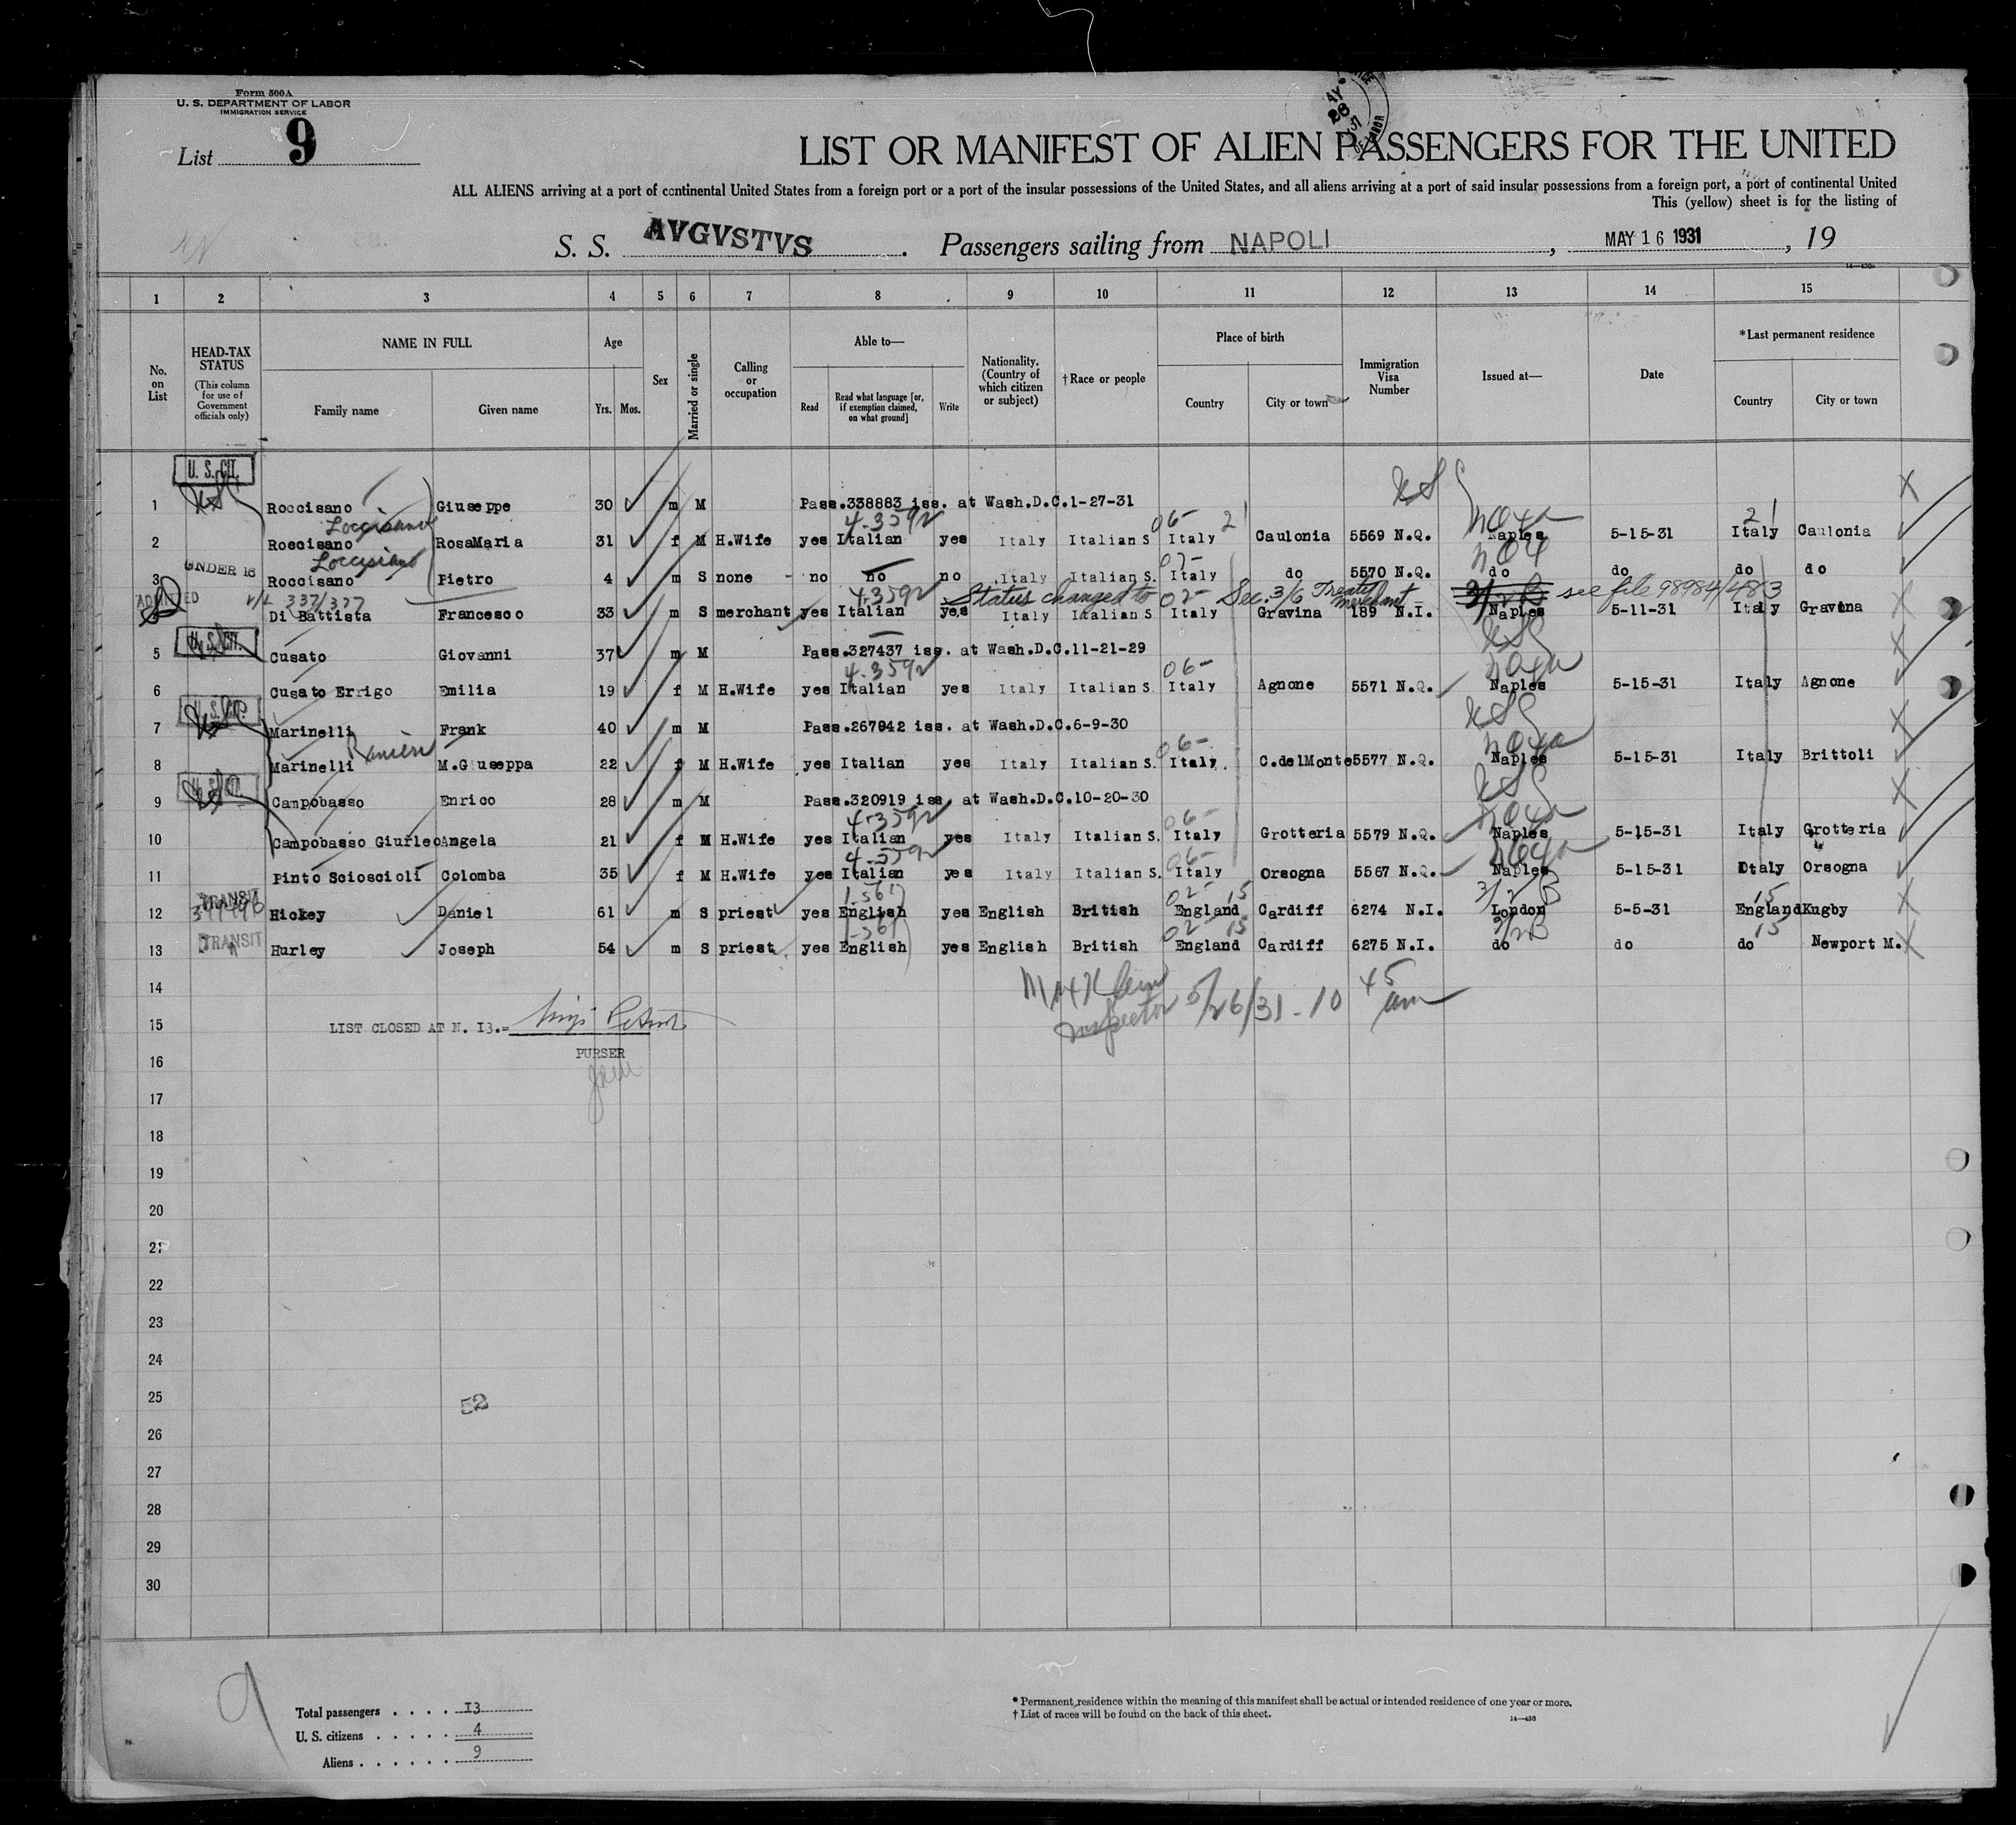 Form 500A
U. S. DEPARTMENT OF LABOR
IMMIGRATION SERVICE
List 9
LIST OR MANIFEST OF ALIEN PASSENGERS FOR THE UNITED
ALL ALIENS arriving at a port of continental United States from a foreign port or a port of the insular possessions of the United States, and all aliens arriving at a port of said insular possessions from a foreign port, a port of continental United
This (yellow) sheet is for the listing of
S. S. AVGVSTVS. Passengers sailing from NAPOLI, MAY 16 1931, 19
14-430
1 2 3 4 5 6 7 8 9 10 11 12 13 14 15
No. on List
HEAD-TAX STATUS (This column for use of Government officials only)
NAME IN FULL
Family name Given name
Age
Yrs. Mos.
Sex
Married or single
Calling or occupation
Able to—
Read
Read what language [or, if exemption claimed, on what ground]
Write
Nationality. (Country of which citizen or subject)
†Race or people
Place of birth
Country City or town
Immigration Visa Number
Issued at—
Date
*Last permanent residence
Country City or town
U. S. CIT.
1 Roccisano Giuseppe 30 m M Pass.338883 iss. at Wash.D.C.1-27-31
Loccisano 4-3592 06- 21 21
2 Roccisano RosaMaria 31 f M H.Wife yes Italian yes Italy Italian S Italy Caulonia 5569 N.Q. Naples 5-15-31 Italy Caulonia
UNDER 16 Loccisano 07-
3 Roccisano Pietro 4 m S none - no no no Italy Italian S. Italy do 5570 N.Q. do do do do
ADMITTED 337/327 4-3592 Status changed to 02- Sec. 3/6 Treaty merchant 3/2 B see file 98984/483
Di Battista Francesco 33 m S merchant yes Italian yes Italy Italian S Italy Gravina 189 N.I. Naples 5-11-31 Italy Gravina
U. S. CIT.
5 Cusato Giovanni 37 m M Pass.327437 iss. at Wash.D.C.11-21-29
4-3592 06-
6 Cusato Errigo Emilia 19 f M H.Wife yes Italian yes Italy Italian S. Italy Agnone 5571 N.Q. Naples 5-15-31 Italy Agnone
U. S. CIT.
7 Marinelli Frank 40 m M Pass.267942 iss. at Wash.D.C.6-9-30
Ranieri 06-
8 Marinelli M.Giuseppa 22 f M H.Wife yes Italian yes Italy Italian S. Italy. C.delMonte 5577 N.Q. Naples 5-15-31 Italy Brittoli
U. S. CIT.
9 Campobasso Enrico 28 m M Pass.320919 iss. at Wash.D.C.10-20-30
4-3592 06-
10 Campobasso Giurleo Angela 21 f M H.Wife yes Italian yes Italy Italian S. Italy Grotteria 5579 N.Q. Naples 5-15-31 Italy Grotteria
4-3592 06-
11 Pinto Scioscioli Colomba 35 f M H.Wife yes Italian yes Italy Italian S. Italy Orsogna 5567 N.Q. Naples 5-15-31 Italy Orsogna
TRANSIT 1-561 02- 15 3/2 B 15
12 Hickey Daniel 61 m S priest yes English yes English British England Cardiff 6274 N.I. London 5-5-31 England Kugby
TRANSIT 1-561 02- 15 3/2B 15
13 Hurley Joseph 54 m S priest yes English yes English British England Cardiff 6275 N.I. do do do Newport M.
14
15 LIST CLOSED AT N. I3.=
Inspector 5/26/31 - 10 45 am
PURSER
16
17
18
19
20
21
22
23
24
25
52
26
27
28
29
30
9
Total passengers . . . . I3
U. S. citizens . . . . . 4
Aliens . . . . . . 9
* Permanent residence within the meaning of this manifest shall be actual or intended residence of one year or more.
† List of races will be found on the back of this sheet.
14-430